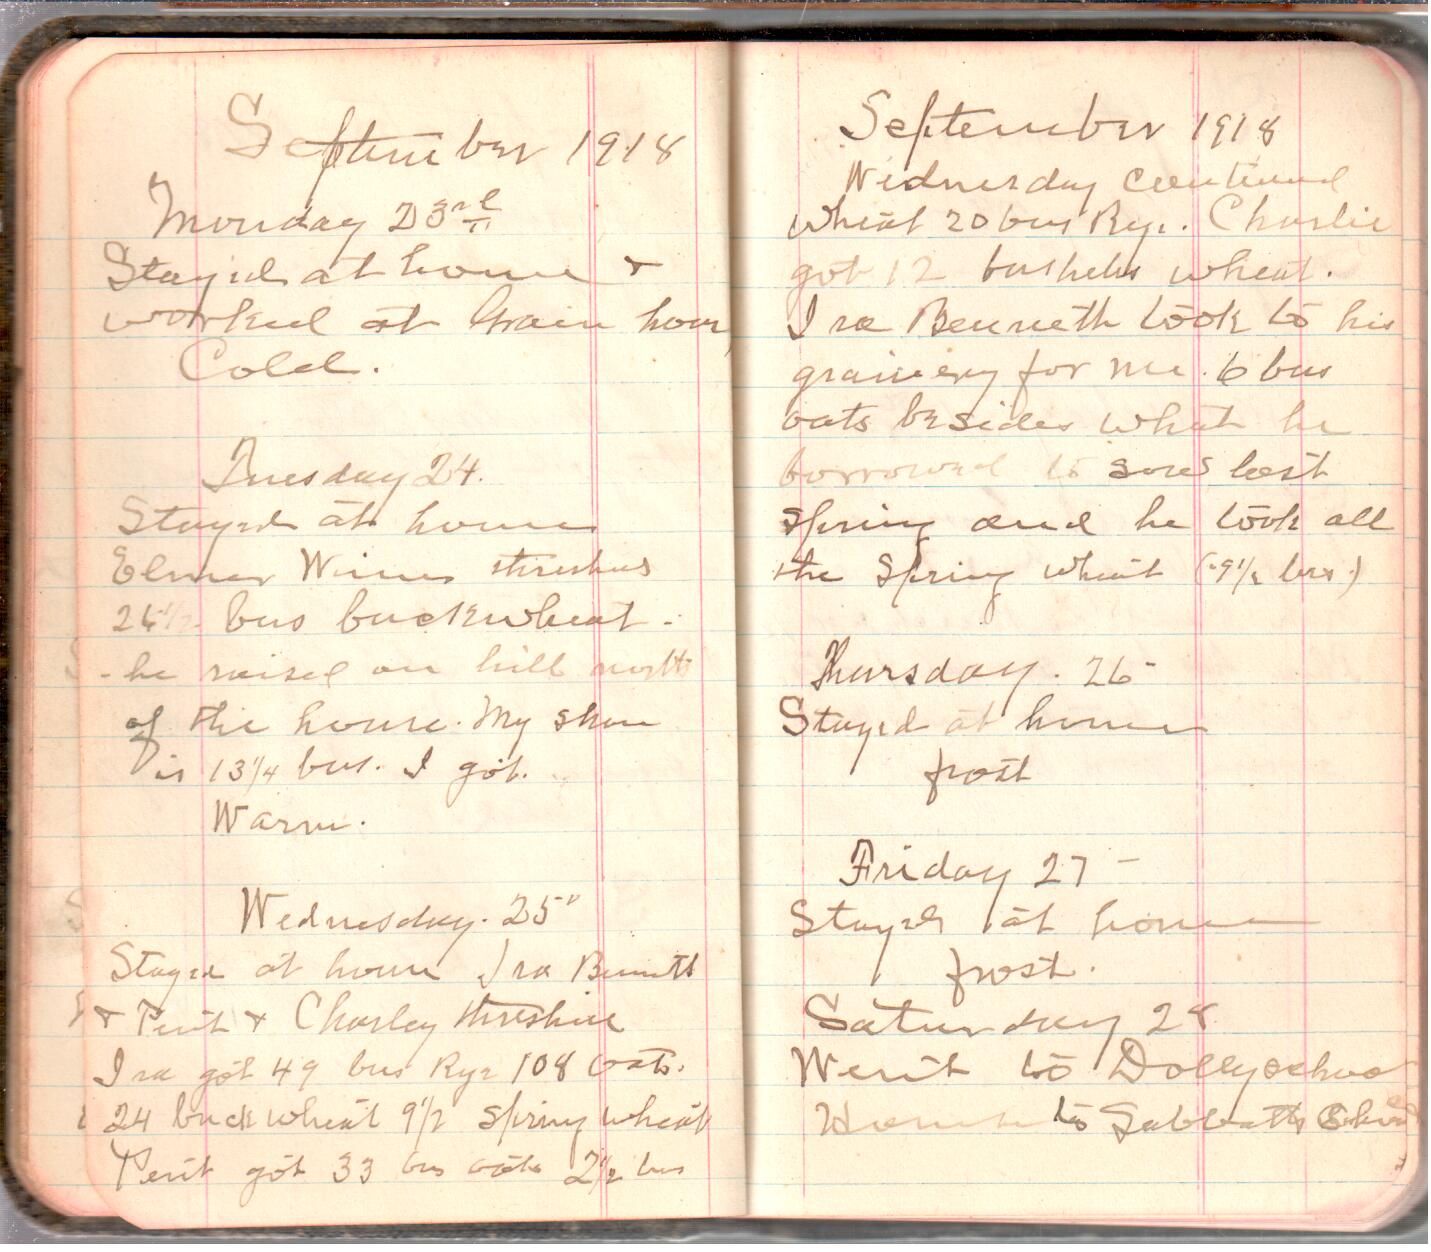 September 1918
Monday 23rd
Stayed at home &
worked at Grain hous
Cold.
Tuesday 24.
Stayed at home
Elmer Wines threshes
26 1/2 bus buckwheat -
- he raised on hill north
of the house. My share
is 13 1/4 bus. I got.
Warm.
Wednesday. 25"
Stayed at home Ira Bennett
& Perit & Charley threshed
Ira got 49 bus Rye 108 oats.
24 buckwheat 9 1/2 spring wheat
Perit got 33 bus oats 2 1/2 bus
September 1918
Wednesday continued
Wheat 20 bus Rye. Charlie
got 12 bushels wheat.
Ira Benneth took to his
grainery for me. 6 bus
oats besides what he
borrowed to sow last
spring and he took all
the Spring wheat (9 1/2 bus.)
Thursday. 26 -
Stayed at home
frost
Friday 27 -
Stayed at home
frost.
Saturday 28
Went to Dolly school
House to Sabbath School